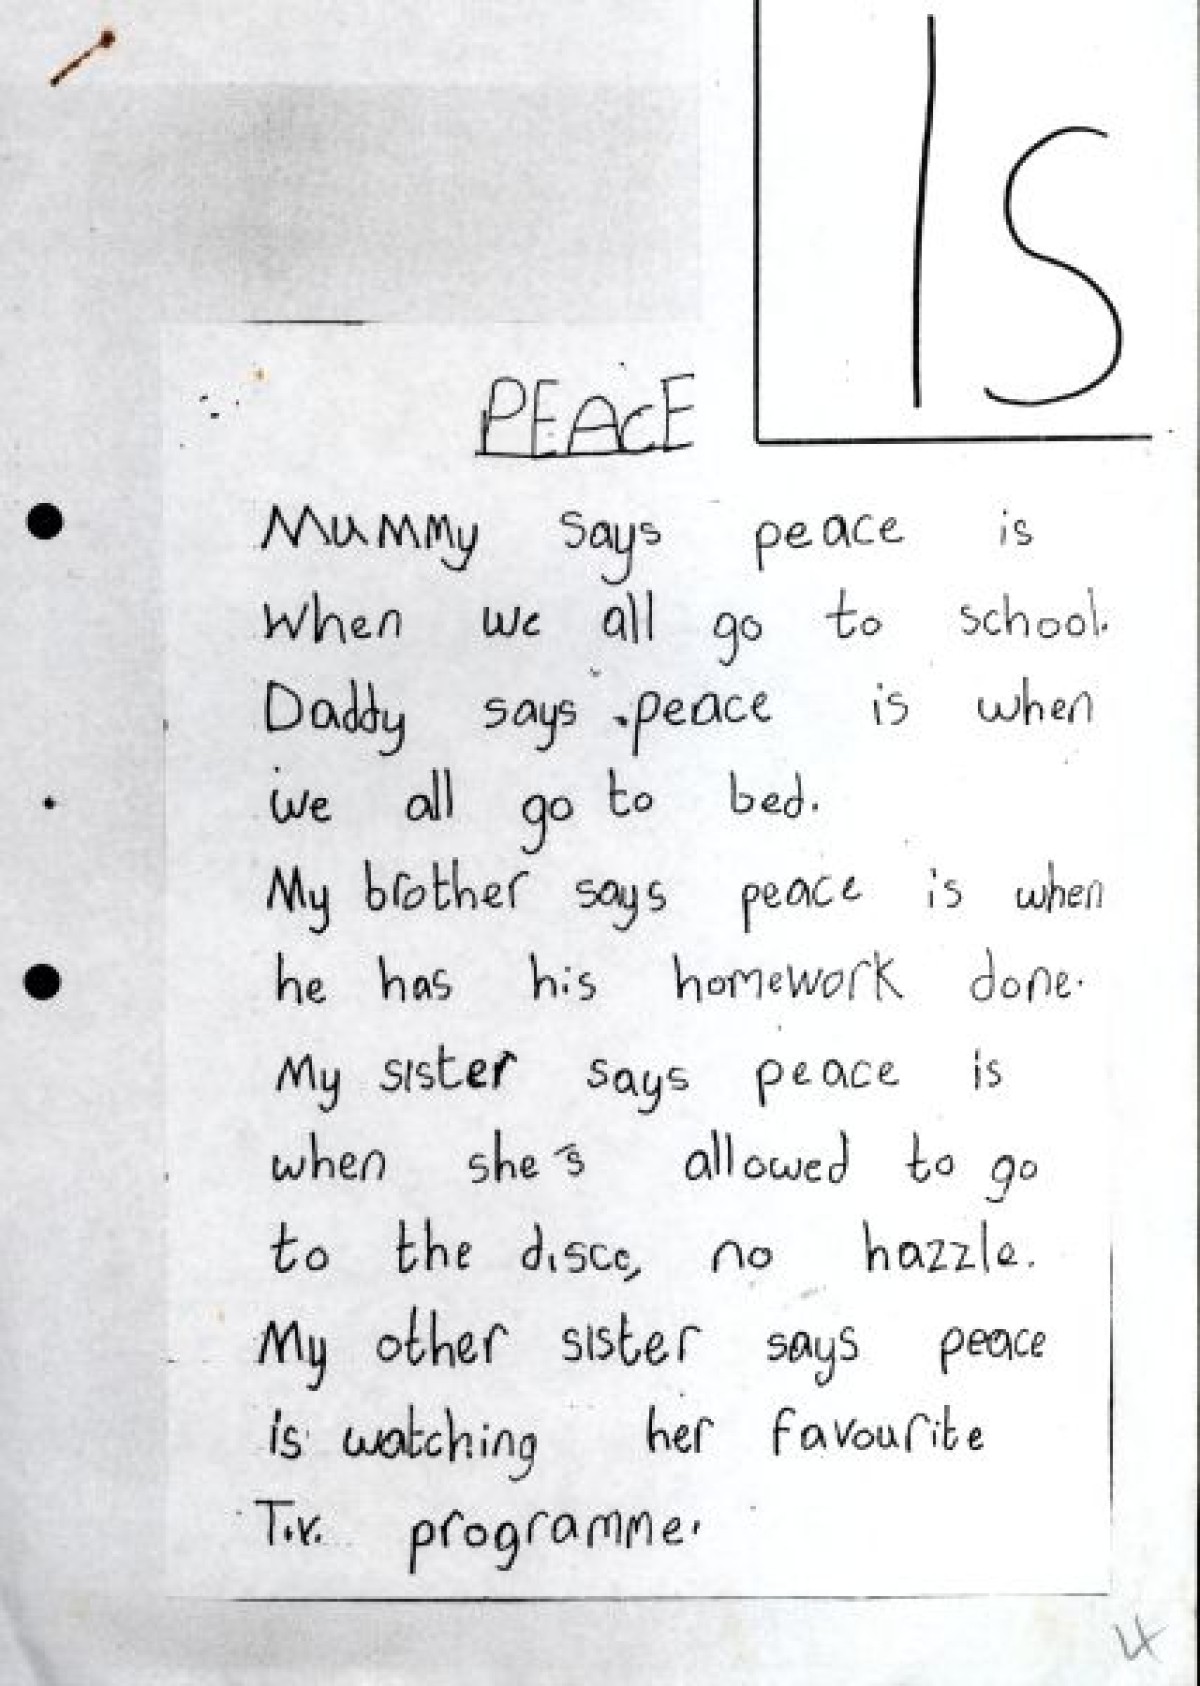 Is
PEACE
Mummy says peace is
When we all go to school.
Daddy says peace is when
we all go to bed.
My brother says peace is when
he has his homework done.
My sister says peace is
when she's allowed to go
to the disco, no hazzle.
My other sister says peace
is watching her favourite
T.V. programme.
4